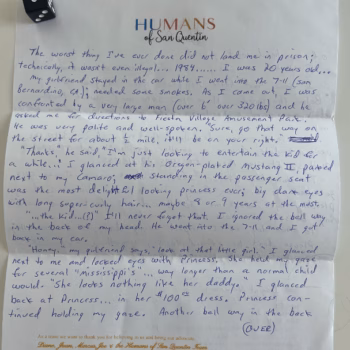 HUMANS
of San Quentin
The worst thing I've ever done did not land me in prison;
technically, it wasn't even illegal... 1984...... I was 20 years old...
My girlfriend stayed in the car while I went into the 7-11 (San
Bernardino, Ca.), needed some smokes. As I came out, I was
confronted by a very large man (over 6' over 320 lbs) and he
asked me for directions to Fiesta Village Amusement Park.
He was very polite and well-spoken. Sure, go that way on
the street for about ½ mile, it'll be on your right."
"Thanks," he said, "I'm just looking to entertain the kid for
a while." I glanced at his Oregon-plated Mustang II, parked
next to my Camaro; standing in the passenger seat
was the most delightful looking princess ever; big dark eyes
with long super curly hair... maybe 8 or 9 years at the most.
"...the kid...(?)" I'll never forget that. I ignored the bell way
in the back of my head. He went into the 7-11 and I got
back in my car.
"Honey," my girlfriend says, "look at that little girl." I glanced
next to me and locked eyes with Princess. She held my gaze
for several "mississippi's"... way longer than a normal child
would. "She looks nothing like her daddy." I glanced
back at Princess... in her $100.00 dress. Princess con-
tinued holding my gaze. Another bell way in the back
(OVER)